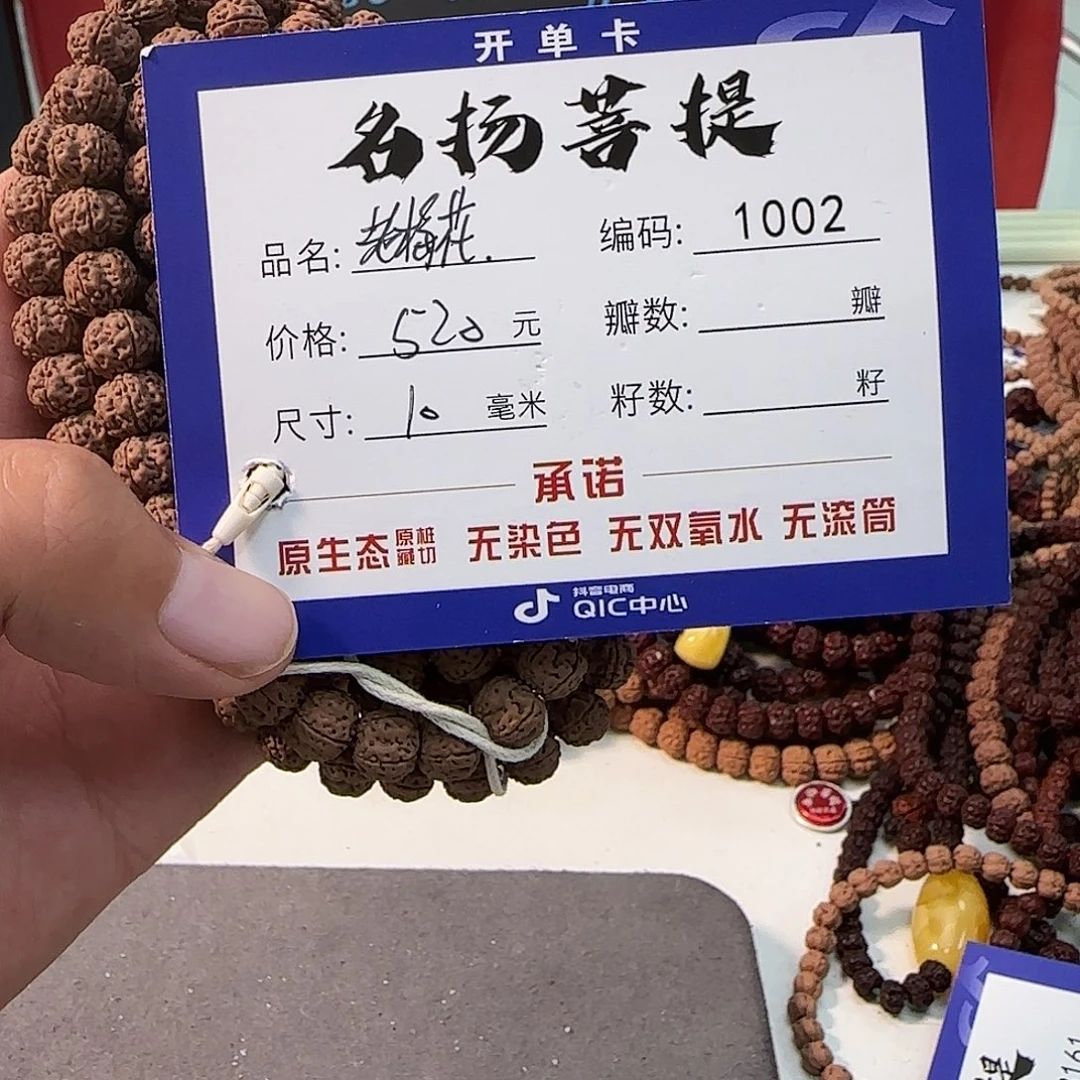 开单卡
名扬菩提
品名: 老梅花. 编码: 1002
价格: 520 元 瓣数: 瓣
尺寸: 10 毫米 籽数: 籽
承诺
原生态 原桩藏切 无染色 无双氧水 无滚筒
抖音电商
QIC中心